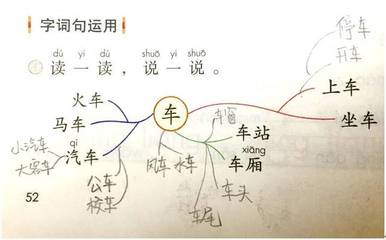 字词句运用
dú yi dú shuō yi shuō
读一读，说一说。
停车
开车
上车
坐车
火车
马车
qì
汽车
小汽车
大客车
公车
校车
车
风车
水车
车窗
车站
xiāng
车厢
车头
车尾
52